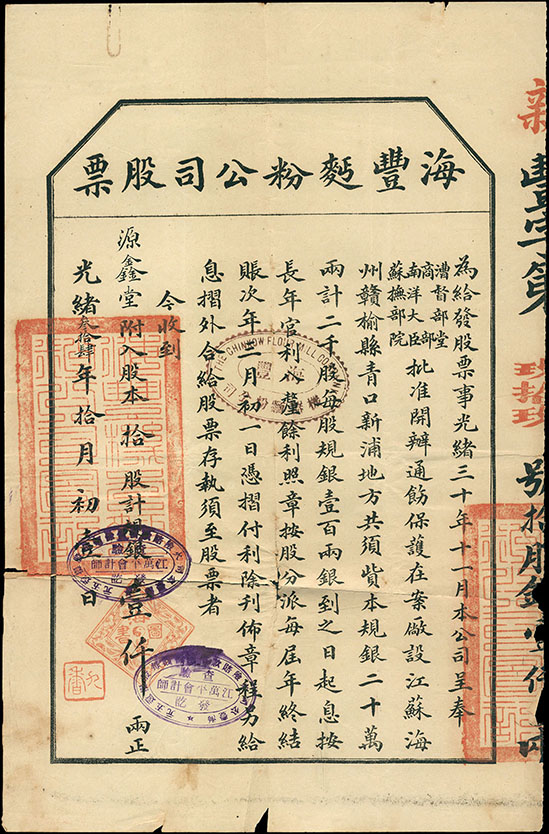 海豐麪粉公司股票
為給發股票事光緒三十年十一月本公司呈奉
漕督部堂
商部
南洋大臣
蘇撫部院
批准開辦通飭保護在案廠設江蘇海
州贛榆縣青口新浦地方共須貲本規銀二十萬
兩計二千股每股規銀壹百兩銀到之日起息按
長年官利 釐餘利照章按股分派每屆年終結
賬次年二月初一日憑摺付利除刋佈章程另給
息摺外合給股票存執須至股票者
今收到
源鑫堂附入股本拾股計規銀壹仟兩正
光緒叁拾肆年拾月初 日
新豐字第 玖拾玖 號拾股銀壹仟
THE CHINKOW FLOUR MILL CO
江萬平會計師
查驗
江萬平會計師